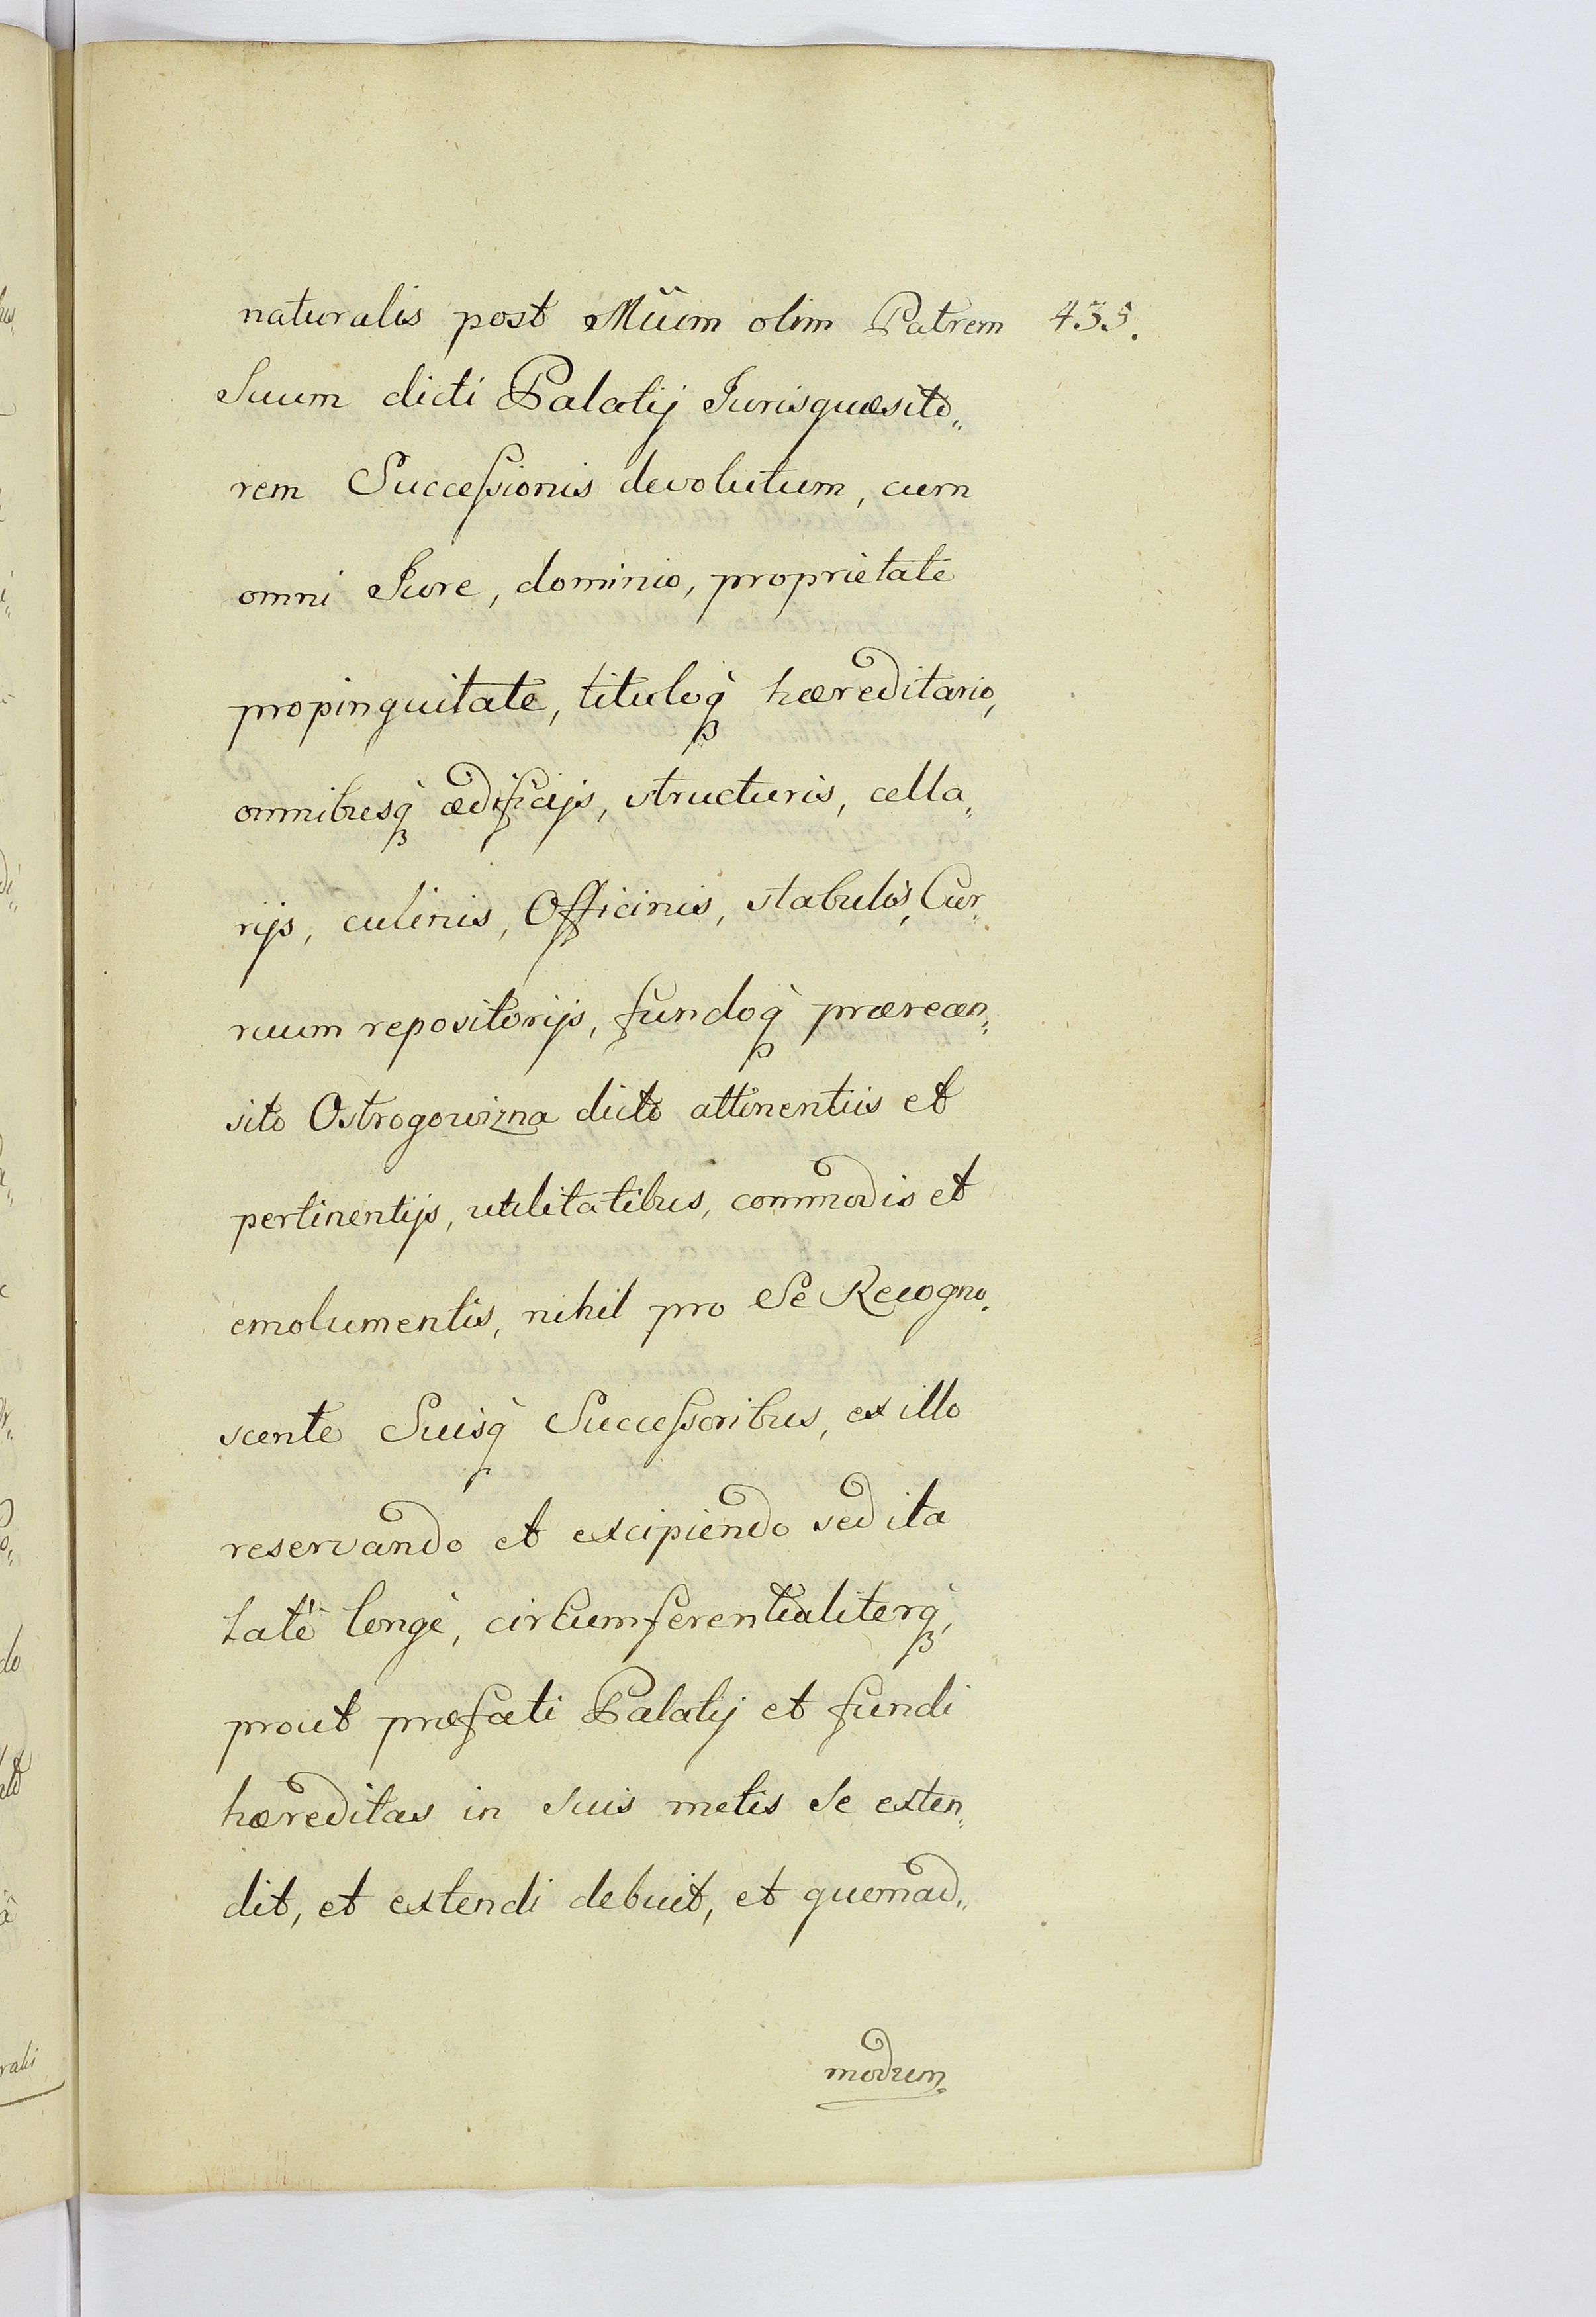 naturalis post Mũum olim Patrem 435.
Suum dicti Palatij Jurisquæsito„
rem Successionis devolutum, cum
omni Jure, dominio, proprietate
propinquitate, tituloq̀ hæreditario,
omnibusq̀ ædificijs, structuris, cella„
rijs, culinis, Officinis, stabulis, Cur„
ruum repositorijs, fundoq̀ prærecen„
sito Ostrogowizna dicto attinentiis et
pertinentijs, utilitatibus, commodis et
emolumentis, nihil pro Se Recogno„
scente Suisq̀ Successoribus, ex illo
reservando et excipiendo sed ita
latè longè, circumferentialiterq̀,
prout præfati Palatij et fundi
hæreditas in suis metis se exten„
dit, et extendi debuit, et quemad„
modum